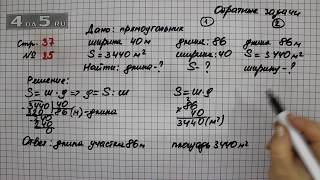 4 ПО 5.RU
Обратные задачи
① ②
Стр. 37
№ 25
Дано: прямоугольник
ширина 40 м
S = 3440 м²
Найти: длина - ?
длина: 86
ширина: 40
S - ?
длина 86 м
S = 3440 м²
ширину - ?
Решение:
S = ш · д ⇒ д = S : ш
3440 | 40
320 86 (м) - длина
240
240
0
S = ш · д
86
× 40
3440 (м²)
Ответ: длина участка 86 м
площадь 3440 м²